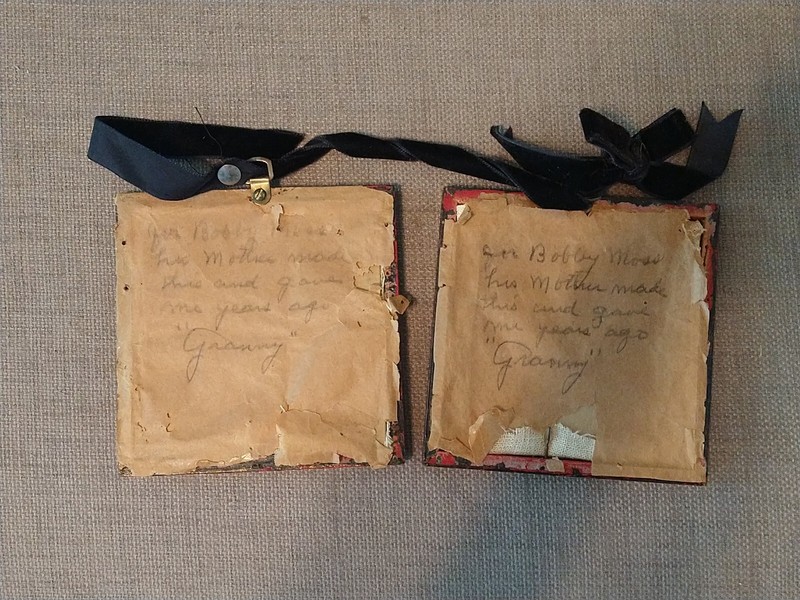 for Bobby Moss
his Mother made
this and gave
me years ago
"Granny"
for Bobby Moss
his Mother made
this and gave
me years ago
"Granny"